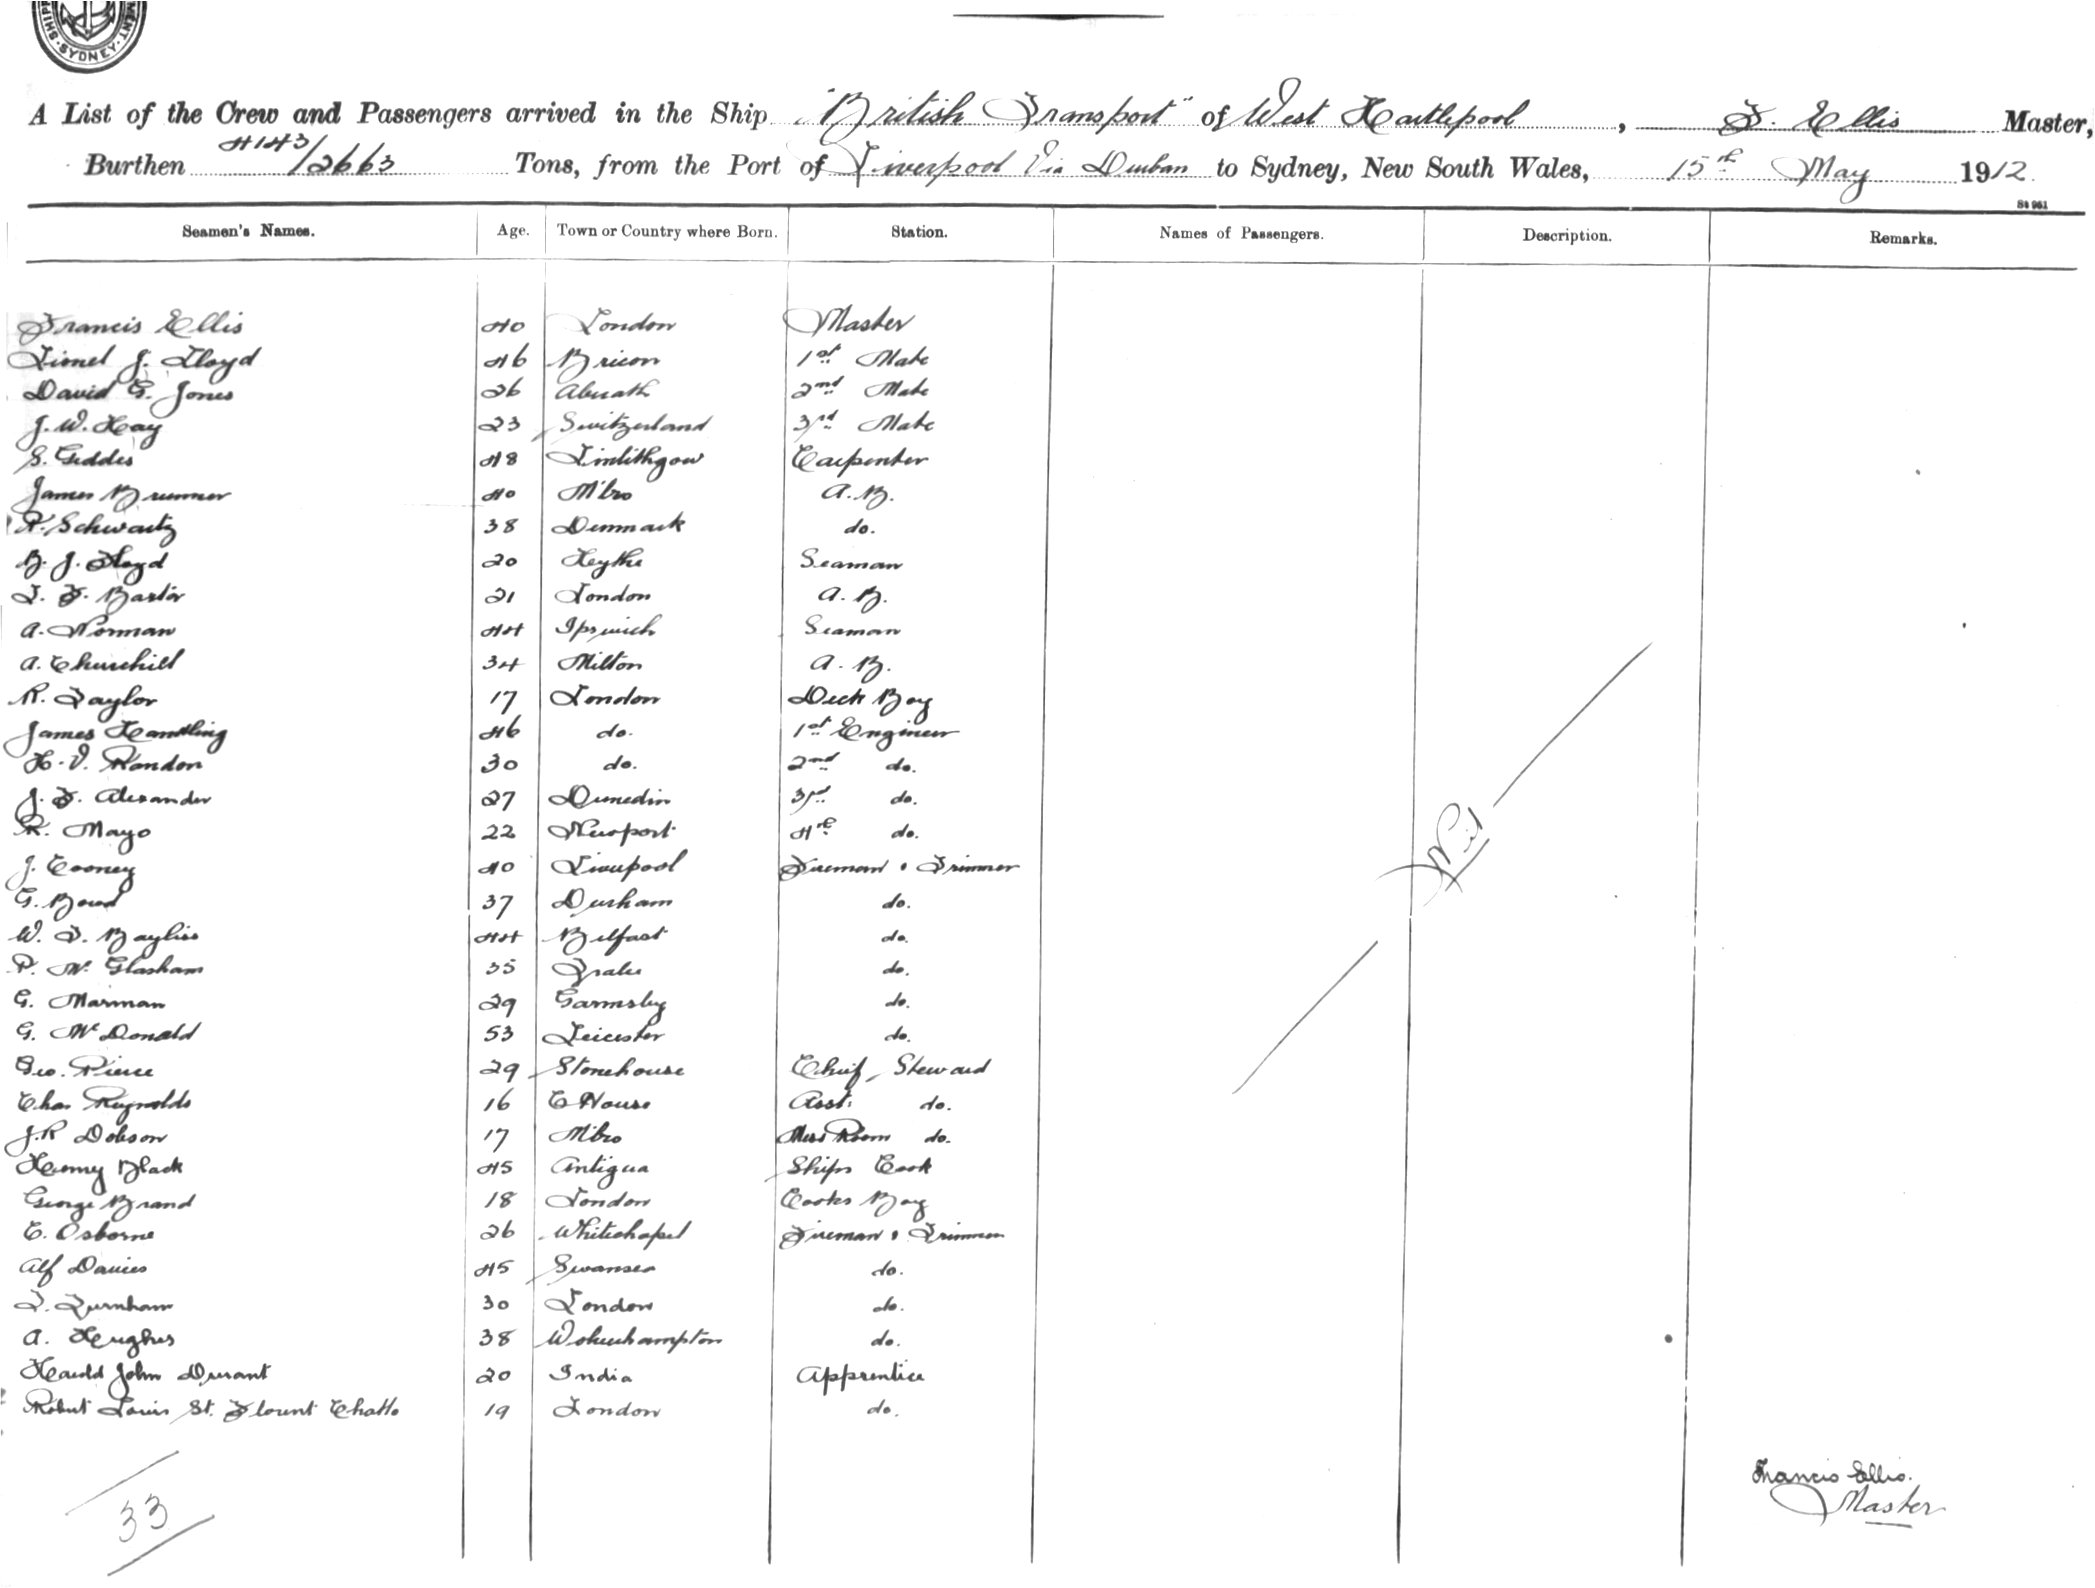 SHIPP MENT. SYDNEY.
A List of the Crew and Passengers arrived in the Ship "British Transport" of West Hartlepool, F. Ellis Master,
Burthen 4143/2663 Tons, from the Port of Liverpool Via Durban to Sydney, New South Wales, 15th May 1912.
St 961
Seamen's Names. Age. Town or Country where Born. Station. Names of Passengers. Description. Remarks.
Francis Ellis 40 London Master
Lionel J. Lloyd 46 Brecon 1st Mate
David G. Jones 26 Aberath 2nd Mate
J. W. Hay 23 Switzerland 3rd Mate
S. Geddes 48 Linlithgow Carpenter
James Brunner 40 M'bro A.B.
R. Schwartz 38 Denmark do.
B. J. Floyd 20 Hythe Seaman
L. F. Bastor 21 London A.B.
A. Norman 44 Ipswich Seaman
A. Churchill 34 Milton A.B.
R. Taylor 17 London Deck Boy
James Hamtling 46 do. 1st Engineer
H. V. Randon 30 do. 2nd do.
J. F. Alexander 27 Dunedin 3rd do.
R. Mayo 22 Newport 4th do.
J. Cooney 40 Liverpool Fireman & Trimmer
G. Bowd 37 Durham do.
W. T. Bayliss 44 Belfast do.
P. Mc Glasham 35 do.
G. Marman 29 Garmsby do.
G. McDonald 53 Leicester do.
Geo. Pierce 29 Stonehouse Chief Steward
Chas Reynolds 16 C House Asst. do.
J. R Dobson 17 M'bro Mess Room do.
Henry Black 45 Antigua Ships Cook
George Brand 18 London Cooks Boy
E. Osborne 26 Whitechapel Fireman & Trimmer
Alf Davies 45 Swansea do.
T. Turnham 30 London do.
A. Hughes 38 Wolverhampton do.
Harold John Durant 20 India Apprentice
Robert Louis St. Flount Chatto 19 London do.
Nil
33
Francis Ellis.
Master